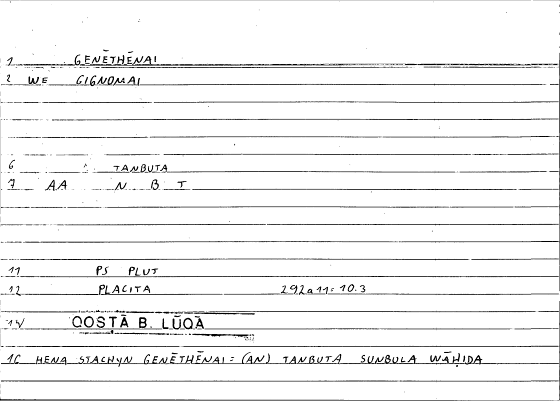 1 GENĒTHĒNAI
2 WE GIGNOMAI
6 TANBUTA
7 AA N B T
11 PS PLUT
12 PLACITA 292a11: 10.3
14 QOSṬĀ B. LŪQĀ
16 HENA STACHYN GENĒTHĒNAI = (AN) TANBUTA SUNBULA WĀḤIDA